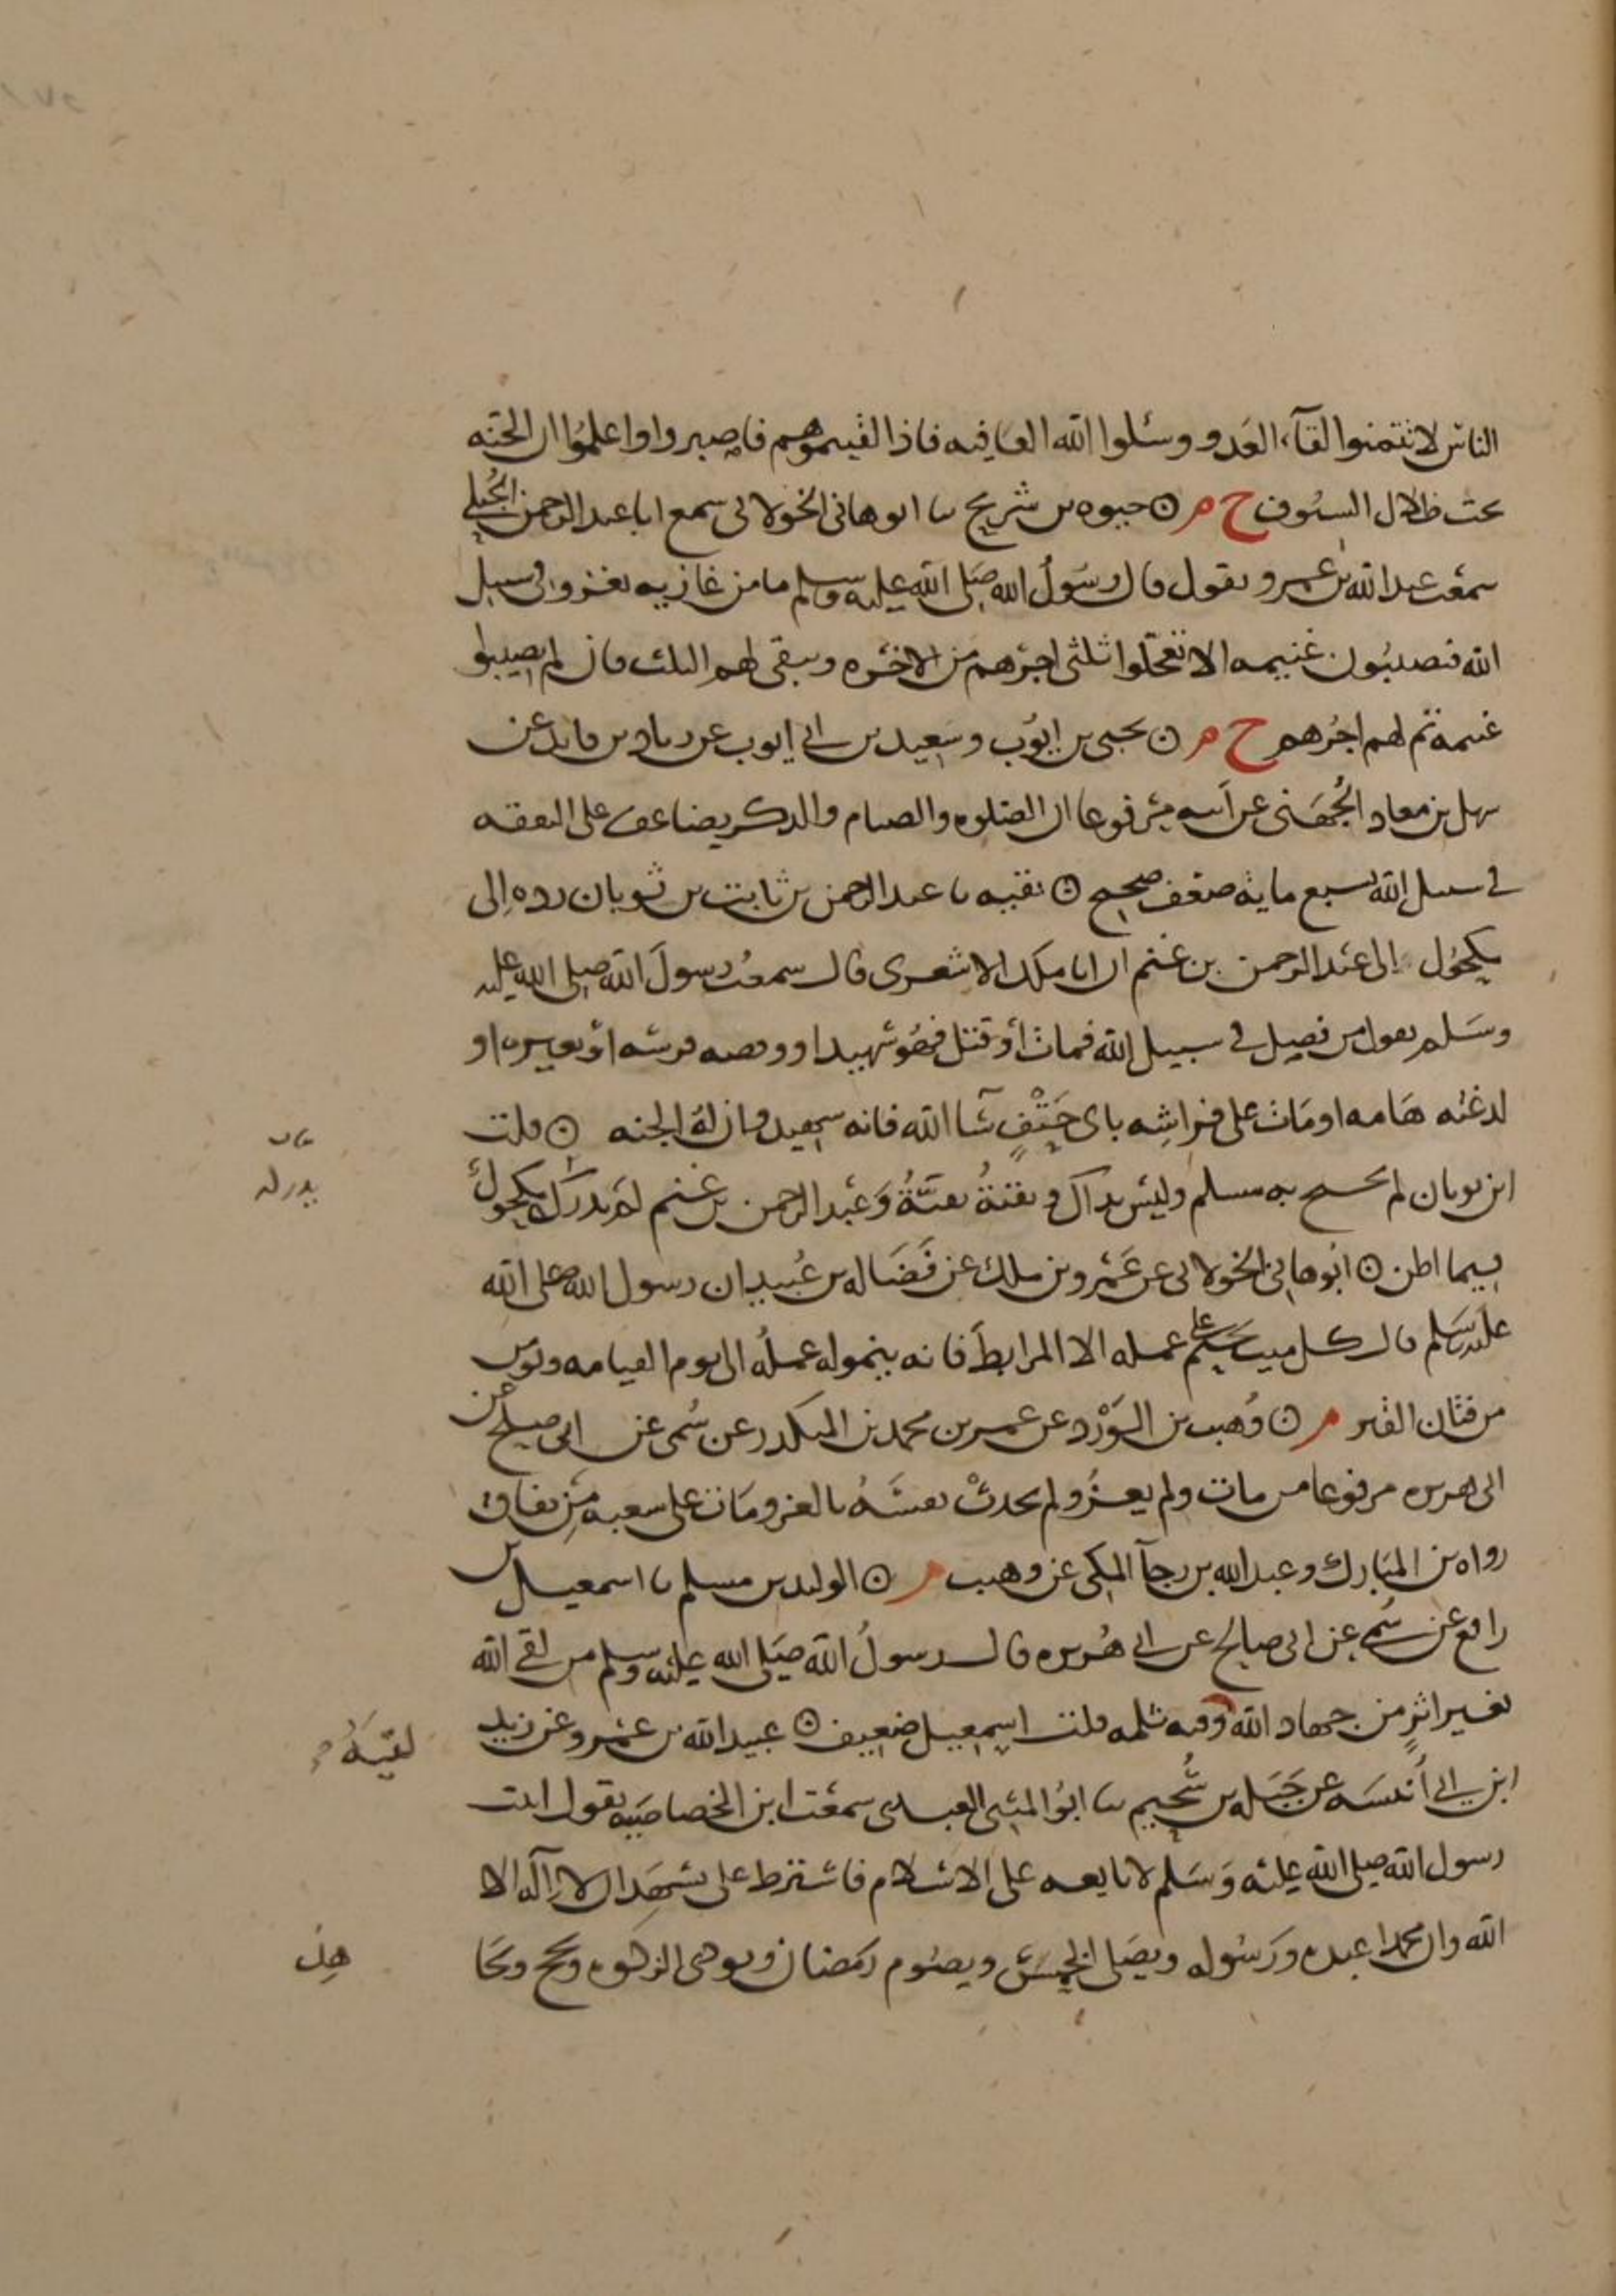 الناس لا تتمنوا لقآء العدو وسئلوا الله العافيه فاذا لقيتموهم فاصبروا واعلموا ان الجنه
تحت ظلال السيوف خ م ۞ حيوه بن شريح نا ابو هانى الخولانى سمع ابا عبد الرحمن الحُبلى
سمعت عبد الله بن عمرو يقول قال رسول الله صلى الله عليه وسلم ما من غازيه تغزو فى سبيل
الله فتصيبون غنيمه الا تعجلوا ثلثى اجرهم من الاخره ويبقى لهم الثلث فان لم يصيبوا
غنيمه تم لهم اجرهم خ م ۞ يحيى بن ايوب وسعيد بن ابى ايوب عن زياد بن فايد عن
سهل بن معاد الجُهَنى عن ابيه مرفوعا ان الصلوه والصيام والذكر يضاعف على النفقه
فى سبيل الله بسبع مايه ضعف صحيح ۞ بقيه نا عبد الرحمن بن ثابت بن ثوبان رده الى
مكحول الى عبد الرحمن بن غنم ان ابا ملك الاشعرى قال سمعت رسول الله صلى الله عليه
وسلم يقول من فصل فى سبيل الله فمات او قتل فهو شهيد او وقصه فرسه او بعيره او
لدغته هامه او مات على فراشه باى حَتْفٍ شآ الله فانه شهيد وان له الجنه ۞ قلت
ابن ثوبان لم يحتج به مسلم وليس بداك و بقيةُ ثقةٌ وعبد الرحمن بن غنم لم يدركه مكحول
فيما اظن ۞ ابو هانى الخولانى عن عمرو بن ملك عن فَضَاله بن عُبيد ان رسول الله صلى الله
عليه وسلم قال كل ميت يختم على عمله الا المرابط فانه ينمو له عمله الى يوم القيامه ويومن
من فتان القبر م ۞ وُهيب بن الوَرْد عن عمر بن محمد بن المنكدر عن سُمى عن ابى صلح عن
ابى هريره مرفوعا من مات ولم يغزُ ولم يحدثْ نفسَهُ بالغزو مات على شعبه من نفاق
رواه بن المبارك وعبد الله بن رجآ المكى عن وهيب م ۞ الوليد بن مسلم نا اسمعيل بن
رافع عن سُمى عن ابى صالح عن ابى هُريره قال رسولُ الله صلى الله عليه وسلم من لقى الله
بغير اثرٍ من جهاد الله وفيه ثلمه قلت اسمعيل ضعيف ۞ عبيد الله بن عمرو عن زيد
ابن ابى أُنيسه عن جَبَله بن سُحيم نا ابو المثنى العبدى سمعت ابن الخصاصيه يقول اتيت
رسول الله صلى الله عليه وسلم لابايعه على الاسلام فاشترط على تشهد ان لا اله الا
الله وان محمدا عبده ورسوله ويصلى الخمس ويصوم رمضان ويودى الزكوه ويحج ويجا
يدركه
لقيَهُ
هد